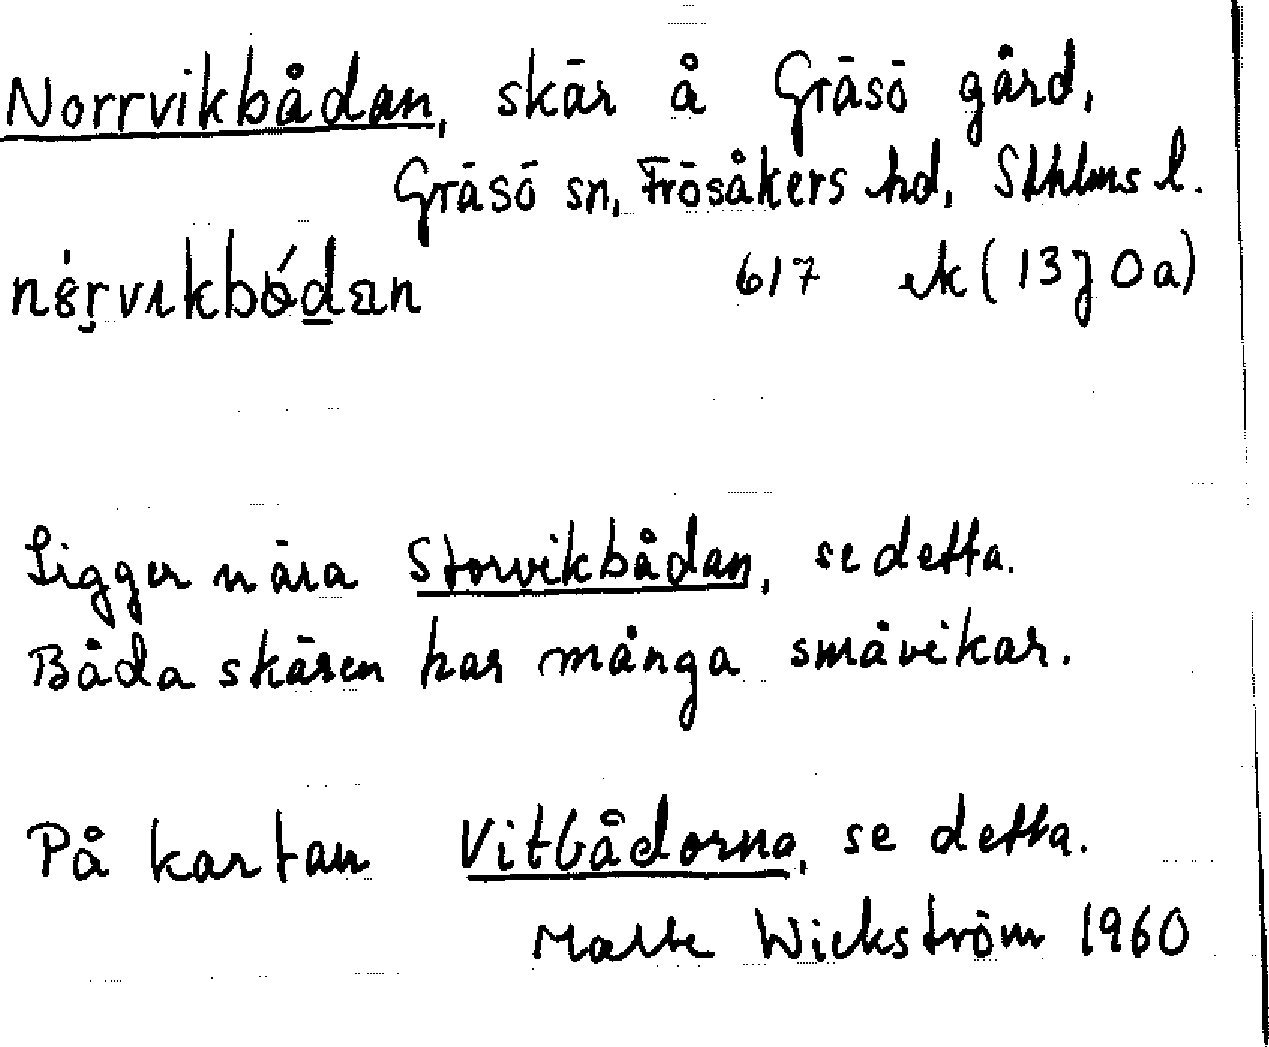 Norrvikbådan, skär å Gräsö gård,
Gräsö sn, Frösåkers hd, Sthlms l.
617 ek (13J 0a)
Ligger nära Storvikbådan, se detta.
Båda skären har många småvikar.
På kartan Vitbådorna, se detta.
Malte Wickström 1960